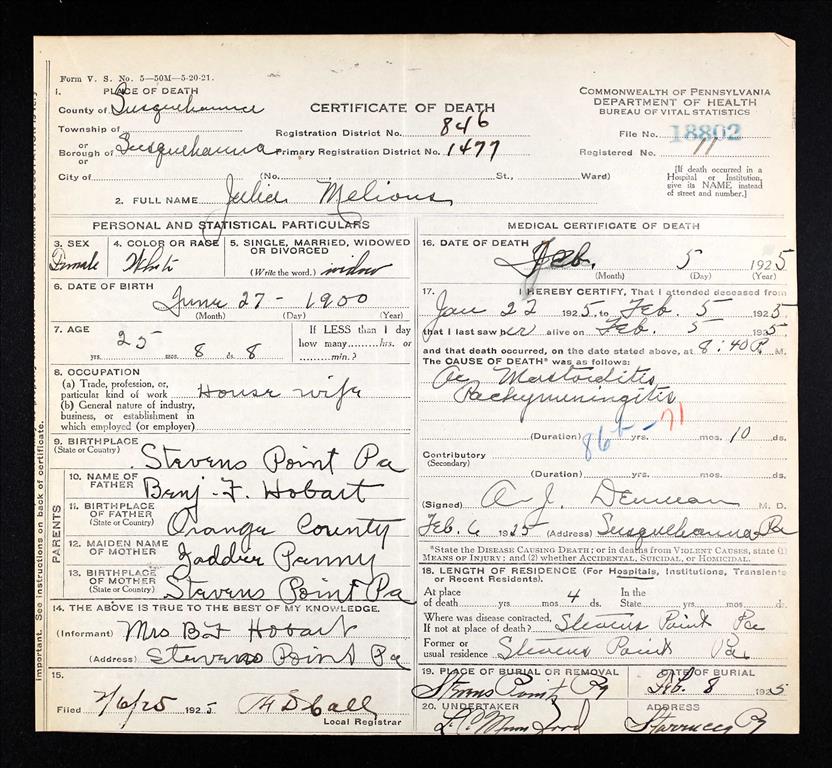 Form V. S. No. 5—50M—5-20-21.
1. PLACE OF DEATH
County of Susquehanna
Township of
or
Borough of Susquehanna
or
City of
CERTIFICATE OF DEATH
Registration District No. 846
Primary Registration District No. 1477
(No. St., Ward)
COMMONWEALTH OF PENNSYLVANIA
DEPARTMENT OF HEALTH
BUREAU OF VITAL STATISTICS
File No. 18802
Registered No. 11
[If death occurred in a Hospital or Institution, give its NAME instead of street and number.]
2. FULL NAME Julia Melious
PERSONAL AND STATISTICAL PARTICULARS
3. SEX
Female
4. COLOR OR RACE
White
5. SINGLE, MARRIED, WIDOWED OR DIVORCED
(Write the word.) widow
6. DATE OF BIRTH
June 27 - 1900
(Month) (Day) (Year)
7. AGE
25 yrs. 8 mos. 8 ds.
If LESS than 1 day
how many hrs. or
min.?
8. OCCUPATION
(a) Trade, profession, or, particular kind of work House wife
(b) General nature of industry, business, or establishment in which employed (or employer)
9. BIRTHPLACE
(State or Country)
Stevens Point Pa
PARENTS
10. NAME OF FATHER
Benj. F. Hobart
11. BIRTHPLACE OF FATHER
(State or Country)
Orange County
12. MAIDEN NAME OF MOTHER
Penny
13. BIRTHPLACE OF MOTHER
(State or Country)
Stevens Point Pa
14. THE ABOVE IS TRUE TO THE BEST OF MY KNOWLEDGE.
(Informant) Mrs B F Hobart
(Address) Stevens Point Pa
15.
Filed 2/6/25 1925 Call
Local Registrar
MEDICAL CERTIFICATE OF DEATH
16. DATE OF DEATH
Feb. 5 1925
(Month) (Day) (Year)
17. I HEREBY CERTIFY, That I attended deceased from
Jan 22 1925, to Feb. 5 1925,
that I last saw her alive on Feb. 5 1925,
and that death occurred, on the date stated above, at 8:40 P. M.
The CAUSE OF DEATH* was as follows:
Ac Mastoiditis
Pachymeningitis
(Duration) yrs. mos. 10 ds.
86 - 71
Contributory
(Secondary)
(Duration) yrs. mos. ds.
(Signed) A. J. Denman M. D.
Feb. 6 1925 (Address) Susquehanna, Pa
*State the DISEASE CAUSING DEATH; or in deaths from VIOLENT CAUSES, state (1) MEANS OF INJURY; and (2) whether ACCIDENTAL, SUICIDAL, OR HOMICIDAL.
18. LENGTH OF RESIDENCE (For Hospitals, Institutions, Transients or Recent Residents).
At place of death yrs. mos. 4 ds.
In the State yrs. mos. ds.
Where was disease contracted, If not at place of death? Stevens Point Pa
Former or usual residence Stevens Point Pa.
19. PLACE OF BURIAL OR REMOVAL
Stevens Point Pa
DATE OF BURIAL
Feb. 8 1925
20. UNDERTAKER
ADDRESS
Starrucca Pa
important. See instructions on back of certificate.